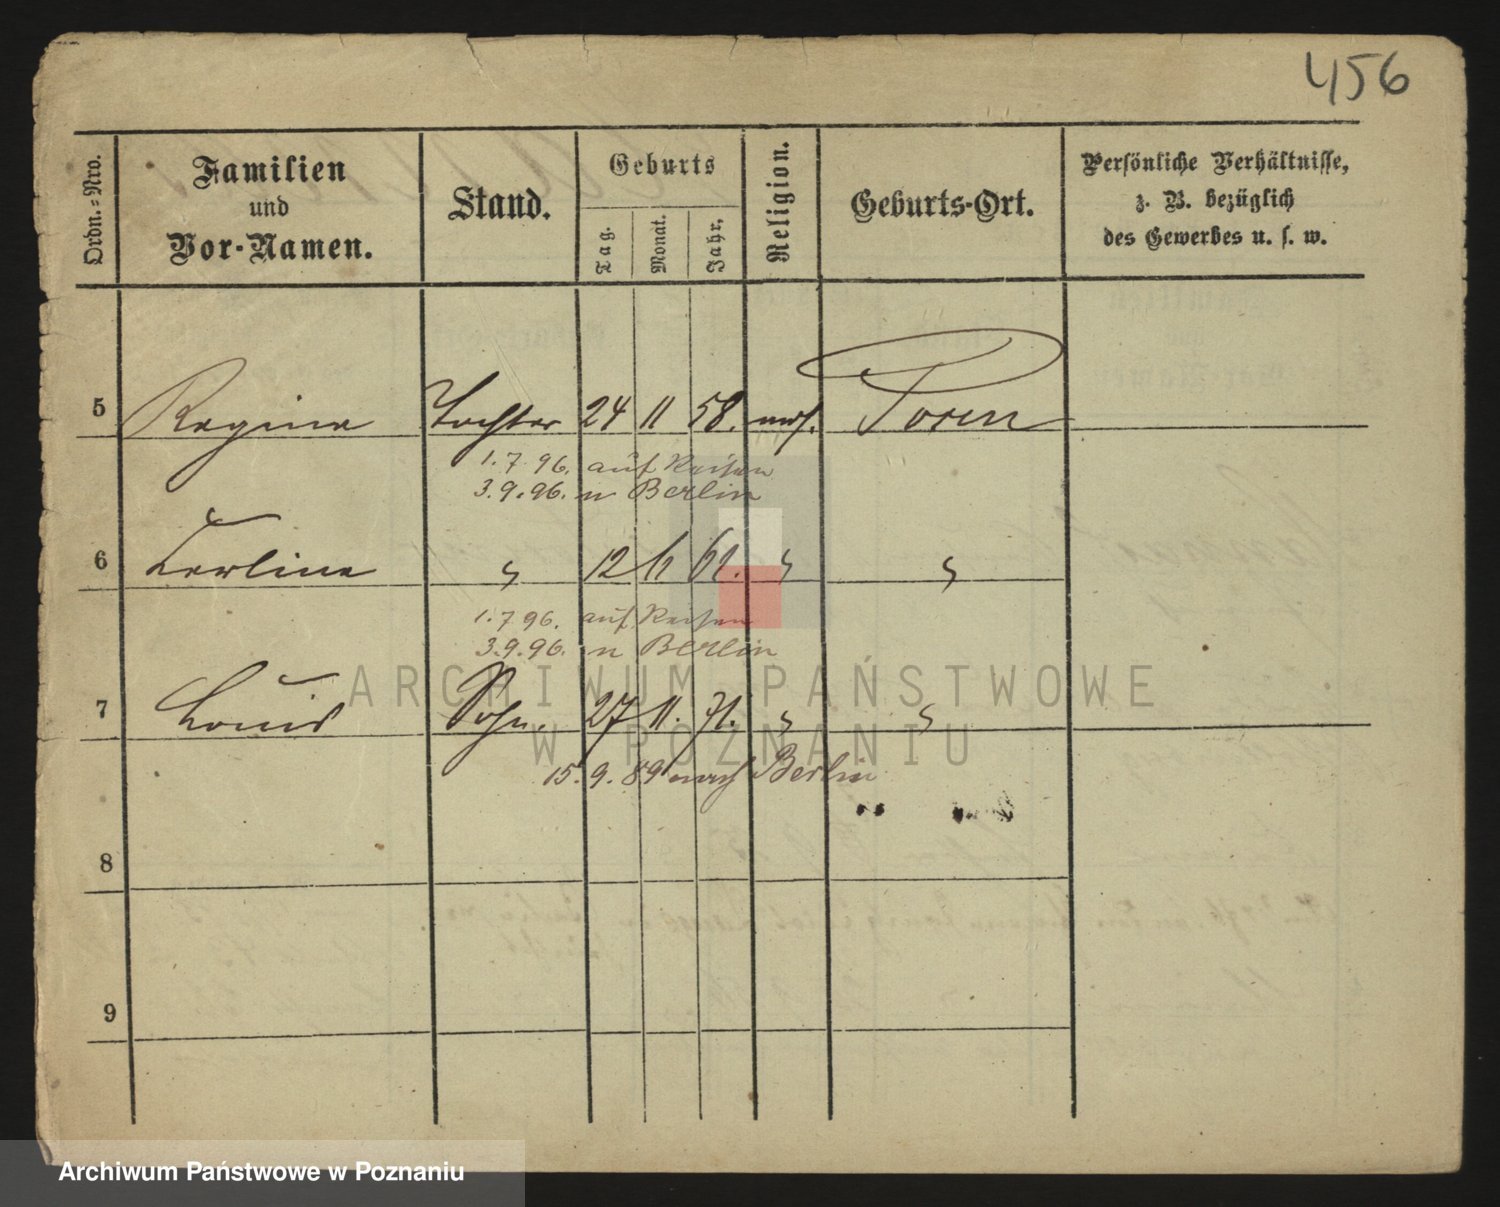 456
Ordn.-Nro.
Familien
und
Vor-Namen.
Stand.
Geburts
Tag.
Monat.
Jahr.
Religion.
Geburts-Ort.
Persönliche Verhältnisse,
z. B. bezüglich
des Gewerbes u. s. w.
5 Regine Tochter 24 11 58. mos. Posen
1.7.96. auf Reisen
3.9.96. n Berlin
6 " 12 61. " "
1.7.96. auf Reisen
3.9.96. n Berlin
7 Louis Sohn. 27 11. 71. " "
15.9.89 nach Berlin
8
9
ARCHIWUM PAŃSTWOWE
W POZNANIU
Archiwum Państwowe w Poznaniu